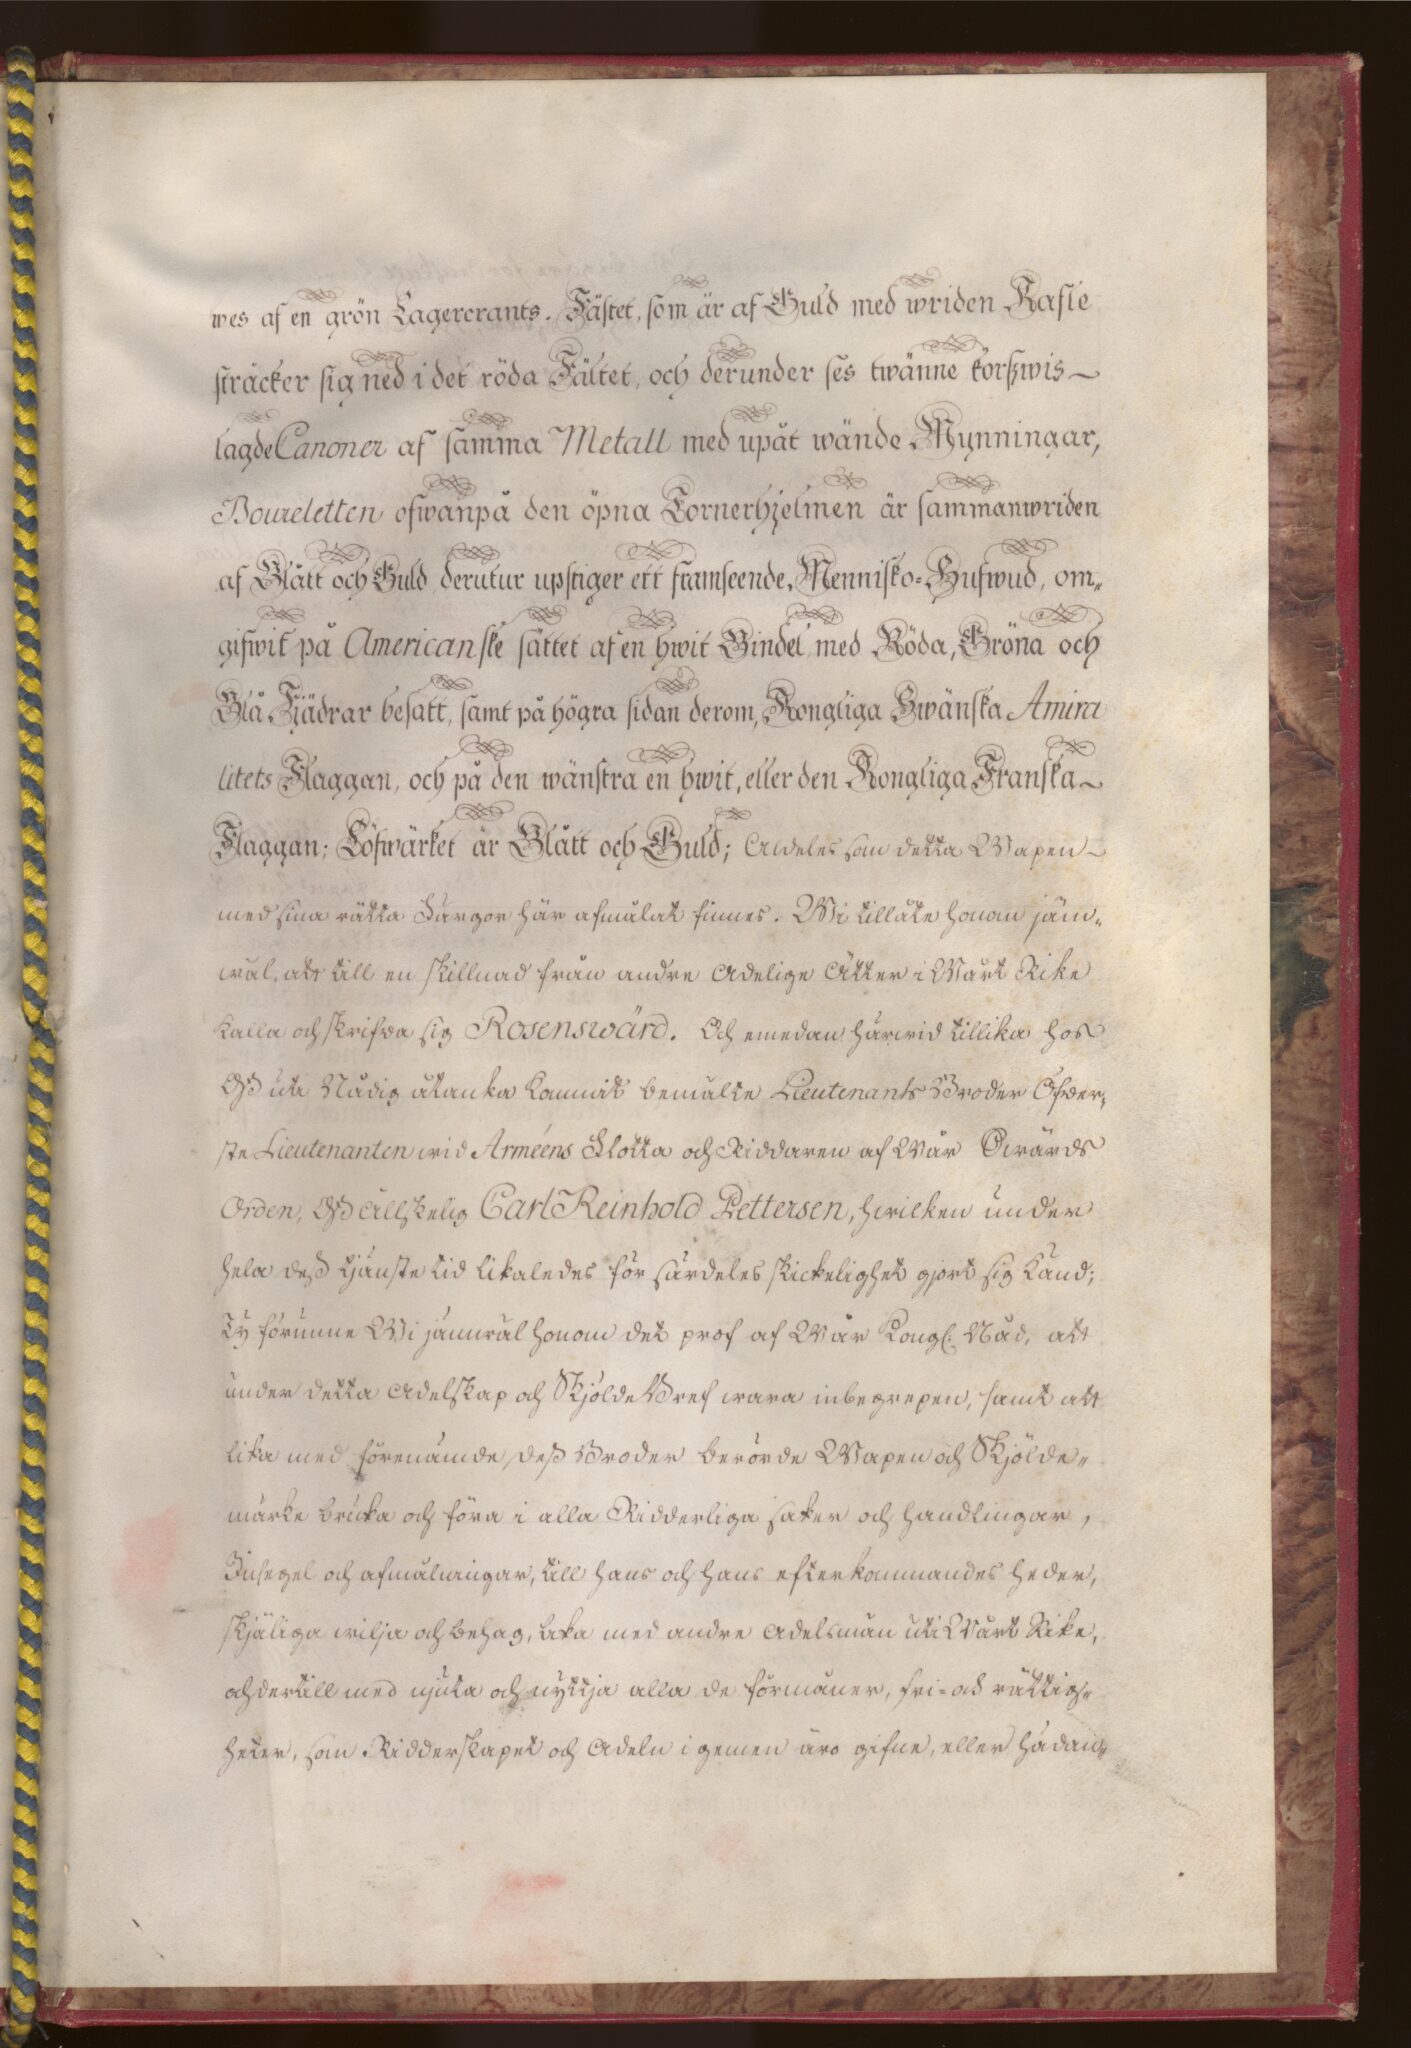 wes af en grön Lagercrants. Fästet, som är af Guld med wriden Kafle
sträcker sig ned i det röda Fältet, och derunder ses twänne korßwis
lagde Canoner af samma Metall med upåt wände Mynningar,
Boureletten ofwanpå den öpna Tornerhjelmen är sammanwriden
af Blått och Guld, derutur upstiger ett framseende Mennisko-Hufwud, om-
gifwit på Americanske sättet af en hwit Bindel med Röda, Gröna och
Blå Fjädrar besatt, samt på högra sidan derom, Kongliga Swänska Amira
litets Flaggan, och på den wänstra en hwit, eller den Kongliga Franska
Flaggan; Löfwärket är Blått och Guld; Aldeles som detta Wapen
med sina rätta Färgor här afmålat finnes. Wi tillåte honom jäm-
wäl, att till en skillnad från andre Adelige Ätter i Wårt Rike
kalla och skrifwa sig Rosenswärd. Och emedan härwid tillika hos
Oß uti Nådig åtanka kommit bemälte Lieutenants Broder Öfwer-
ste Lieutenanten wid Arméens Flotta och Riddaren af Wår Swärds
Orden, Oß Älskelig Carl Reinhold Pettersen, hwilken under
hela deß tjänste tid likaledes för särdeles skickelighet gjort sig känd;
Ty förunne Wi jämwäl honom det prof af Wår Kongl. Nåd, att
under detta Adelskap och Skjölde Bref wara inbegrepen, samt att
lika med förenämde deß Broder berörde Wapen och Skjölde-
märke bruka och föra i alla Ridderliga saker och handlingar,
Insegel och afmålningar, till hans och hans efterkommandes heder,
skjäliga wilja och behag, lika med andre Adelsmän uti Wårt Rike,
och dertill med njuta och nyttja alla de förmåner, fri- och rättig-
heter, som Ridderskapet och Adeln i gemen äro gifne, eller hädan-